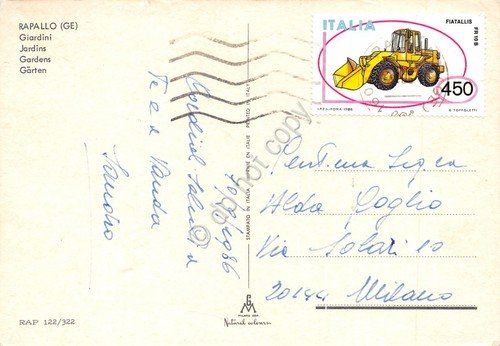 RAPALLO (GE)
Giardini
Jardins
Gardens
Gärten
ITALIA
FIATALLIS
FR 10 B
450
I.P.Z.S.-ROMA-1986
G. TOFFOLETTI
1986
Cordiali Saluti a
Te e a Vanda
Sandro
STAMPATO IN ITALIA - IMPRIMÉ EN ITALIE - PRINTED IN ITALY
Gent.ma Sig.ra
Alda
Via Solari 10
20144 Milano
Natural colorcrom
RAP 122/322
do not copy